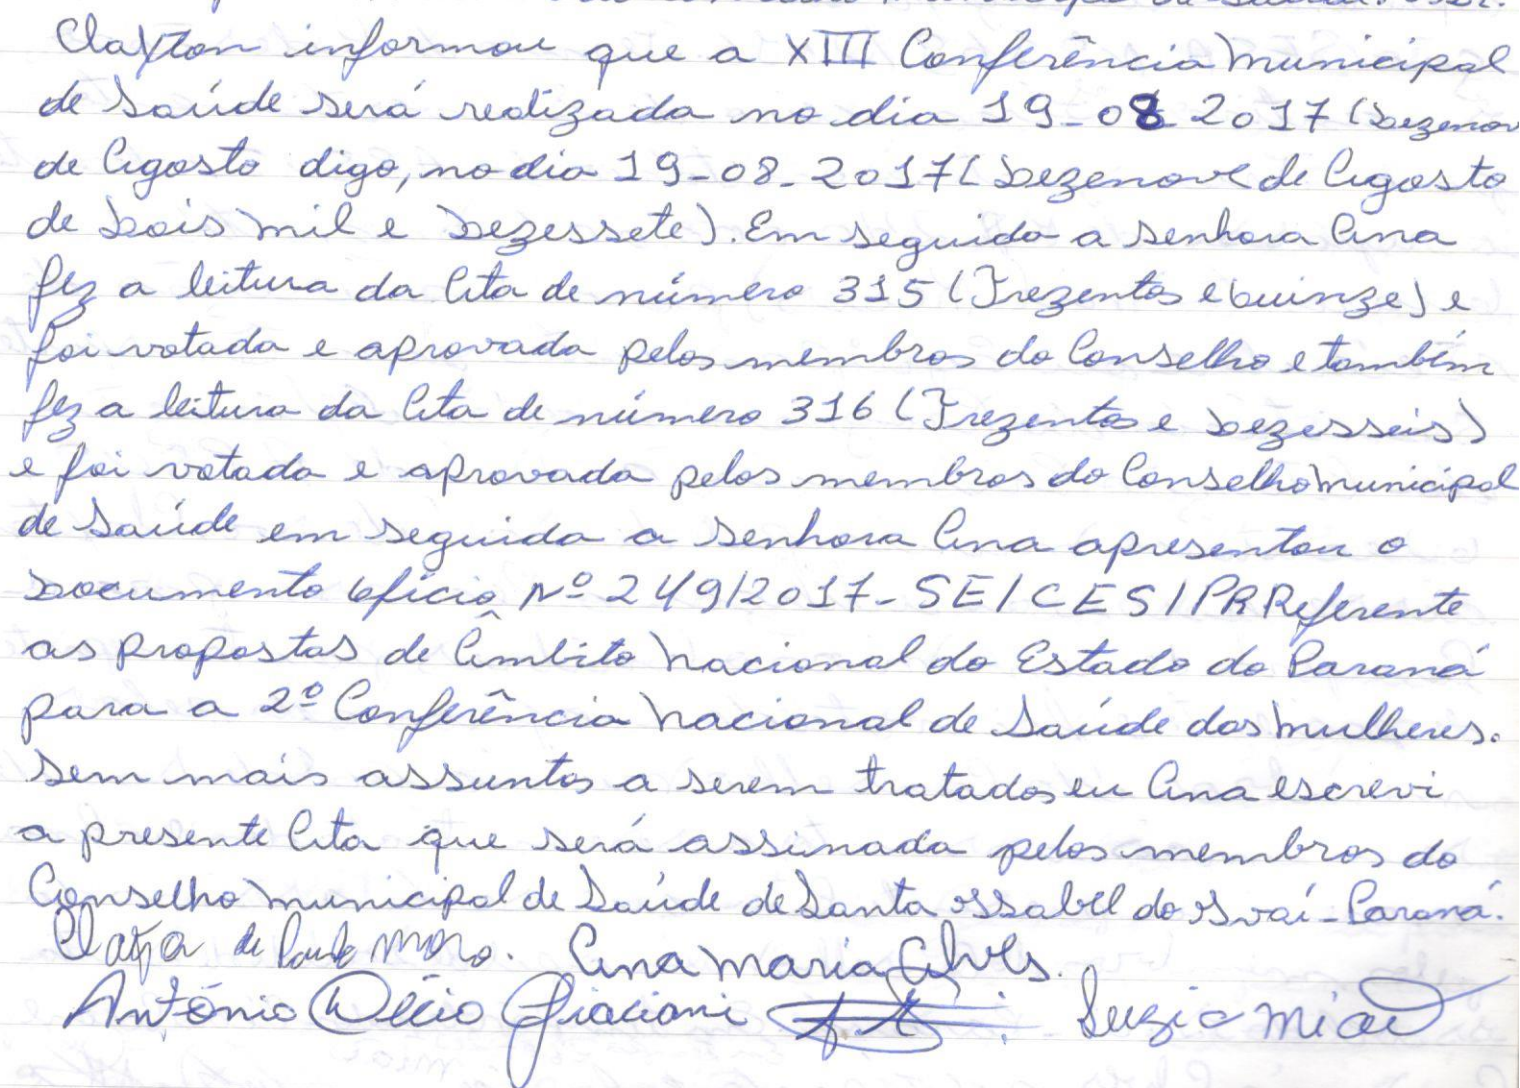 Clayton informou que a XIII Conferência Municipal
de Saúde será realizada no dia 19-08 2017 (Dezenov
de Agosto digo, no dia 19-08-2017 (Dezenove de Agosto
de Dois Mil e Dezessete). Em seguida a Senhora Ana
fez a leitura da Ata de número 315 (Trezentos e Quinze) e
foi votada e aprovada pelos membros do Conselho e também
fez a leitura da Ata de número 316 (Trezentos e Dezesseis)
e foi votada e aprovada pelos membros do Conselho Municipal
de Saúde em seguida a Senhora Ana apresentou o
Documento Ofício, Nº 249/2017-SE/CES/PR Referente
as propostas de Âmbito Nacional do Estado do Paraná
para a 2º Conferência Nacional de Saúde das Mulheres.
Sem mais assuntos a serem tratados eu Ana escrevi
a presente Ata que será assinada pelos membros do
Conselho Municipal de Saúde de Santa Issabel do Ivaí-Paraná.
de Moro. Ana Maria Alves.
António Décio Giaciani Luzia